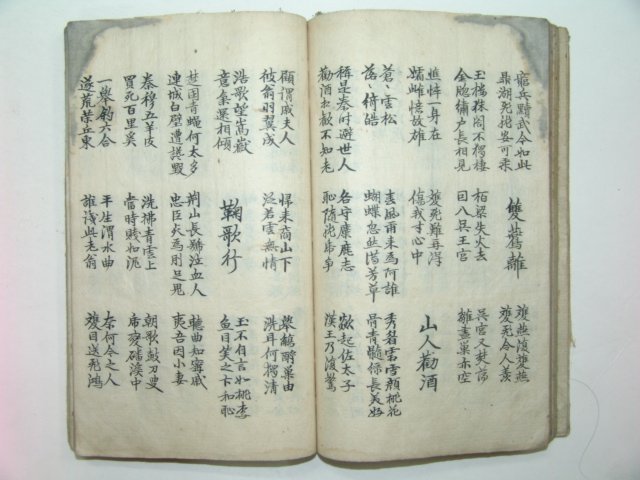 窮兵黷武今如此
鼎湖飛龍安可乘
雙鷰離
雙燕復雙燕
雙飛令人羨
玉樓珠閣不獨棲
金窓繡戶長相見
栢梁失火去
因入吳王宮
吳宮又焚蕩
雛盡巢亦空
憔悴一身在
孀雌憶故雄
雙飛難再得
傷我寸心中
山人勸酒
蒼〻雲松
落〻綺皓
春風爾來爲阿誰
蝴蝶忽然滿芳草
秀眉霜雪顏桃花
骨青髓綠長美好
稱是秦時避世人
勸酒相歡不知老
各守麋鹿志
恥隨龍虎爭
欻起佐太子
漢王乃復驚
顧謂戚夫人
彼翁羽翼成
歸來商山下
泛若雲無情
擧觴酹巢由
洗耳何獨清
浩歌望嵩嶽
意氣還相傾
鞠歌行
玉不自言如桃李
魚目笑之卞和恥
楚國青蠅何太多
連城白璧遭讒毀
荊山長號泣血人
忠臣死爲刖足鬼
聽曲知甯戚
夷吾因小妻
秦穆五羊皮
買死百里奚
洗拂青雲上
當時賤如泥
朝歌鼓刀叟
虎變磻溪中
一擧釣六合
遂荒營丘東
平生渭水曲
誰識此老翁
奈何今之人
雙目送飛鴻